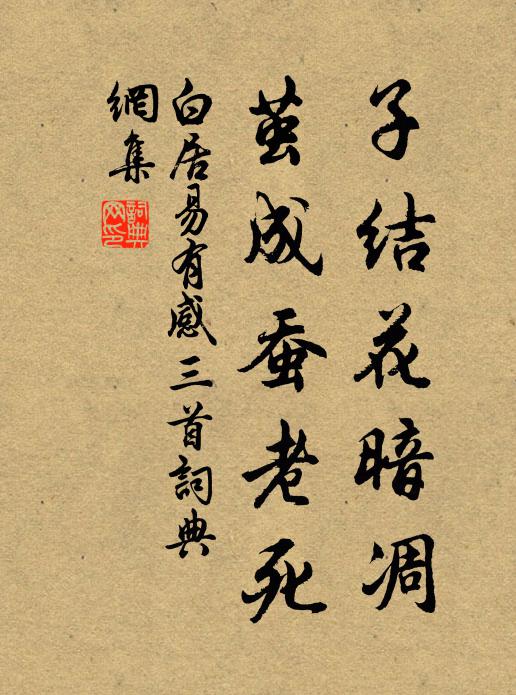 子结花暗凋
茧成蚕老死
白居易有感三首詞典
網集
詞典
网印